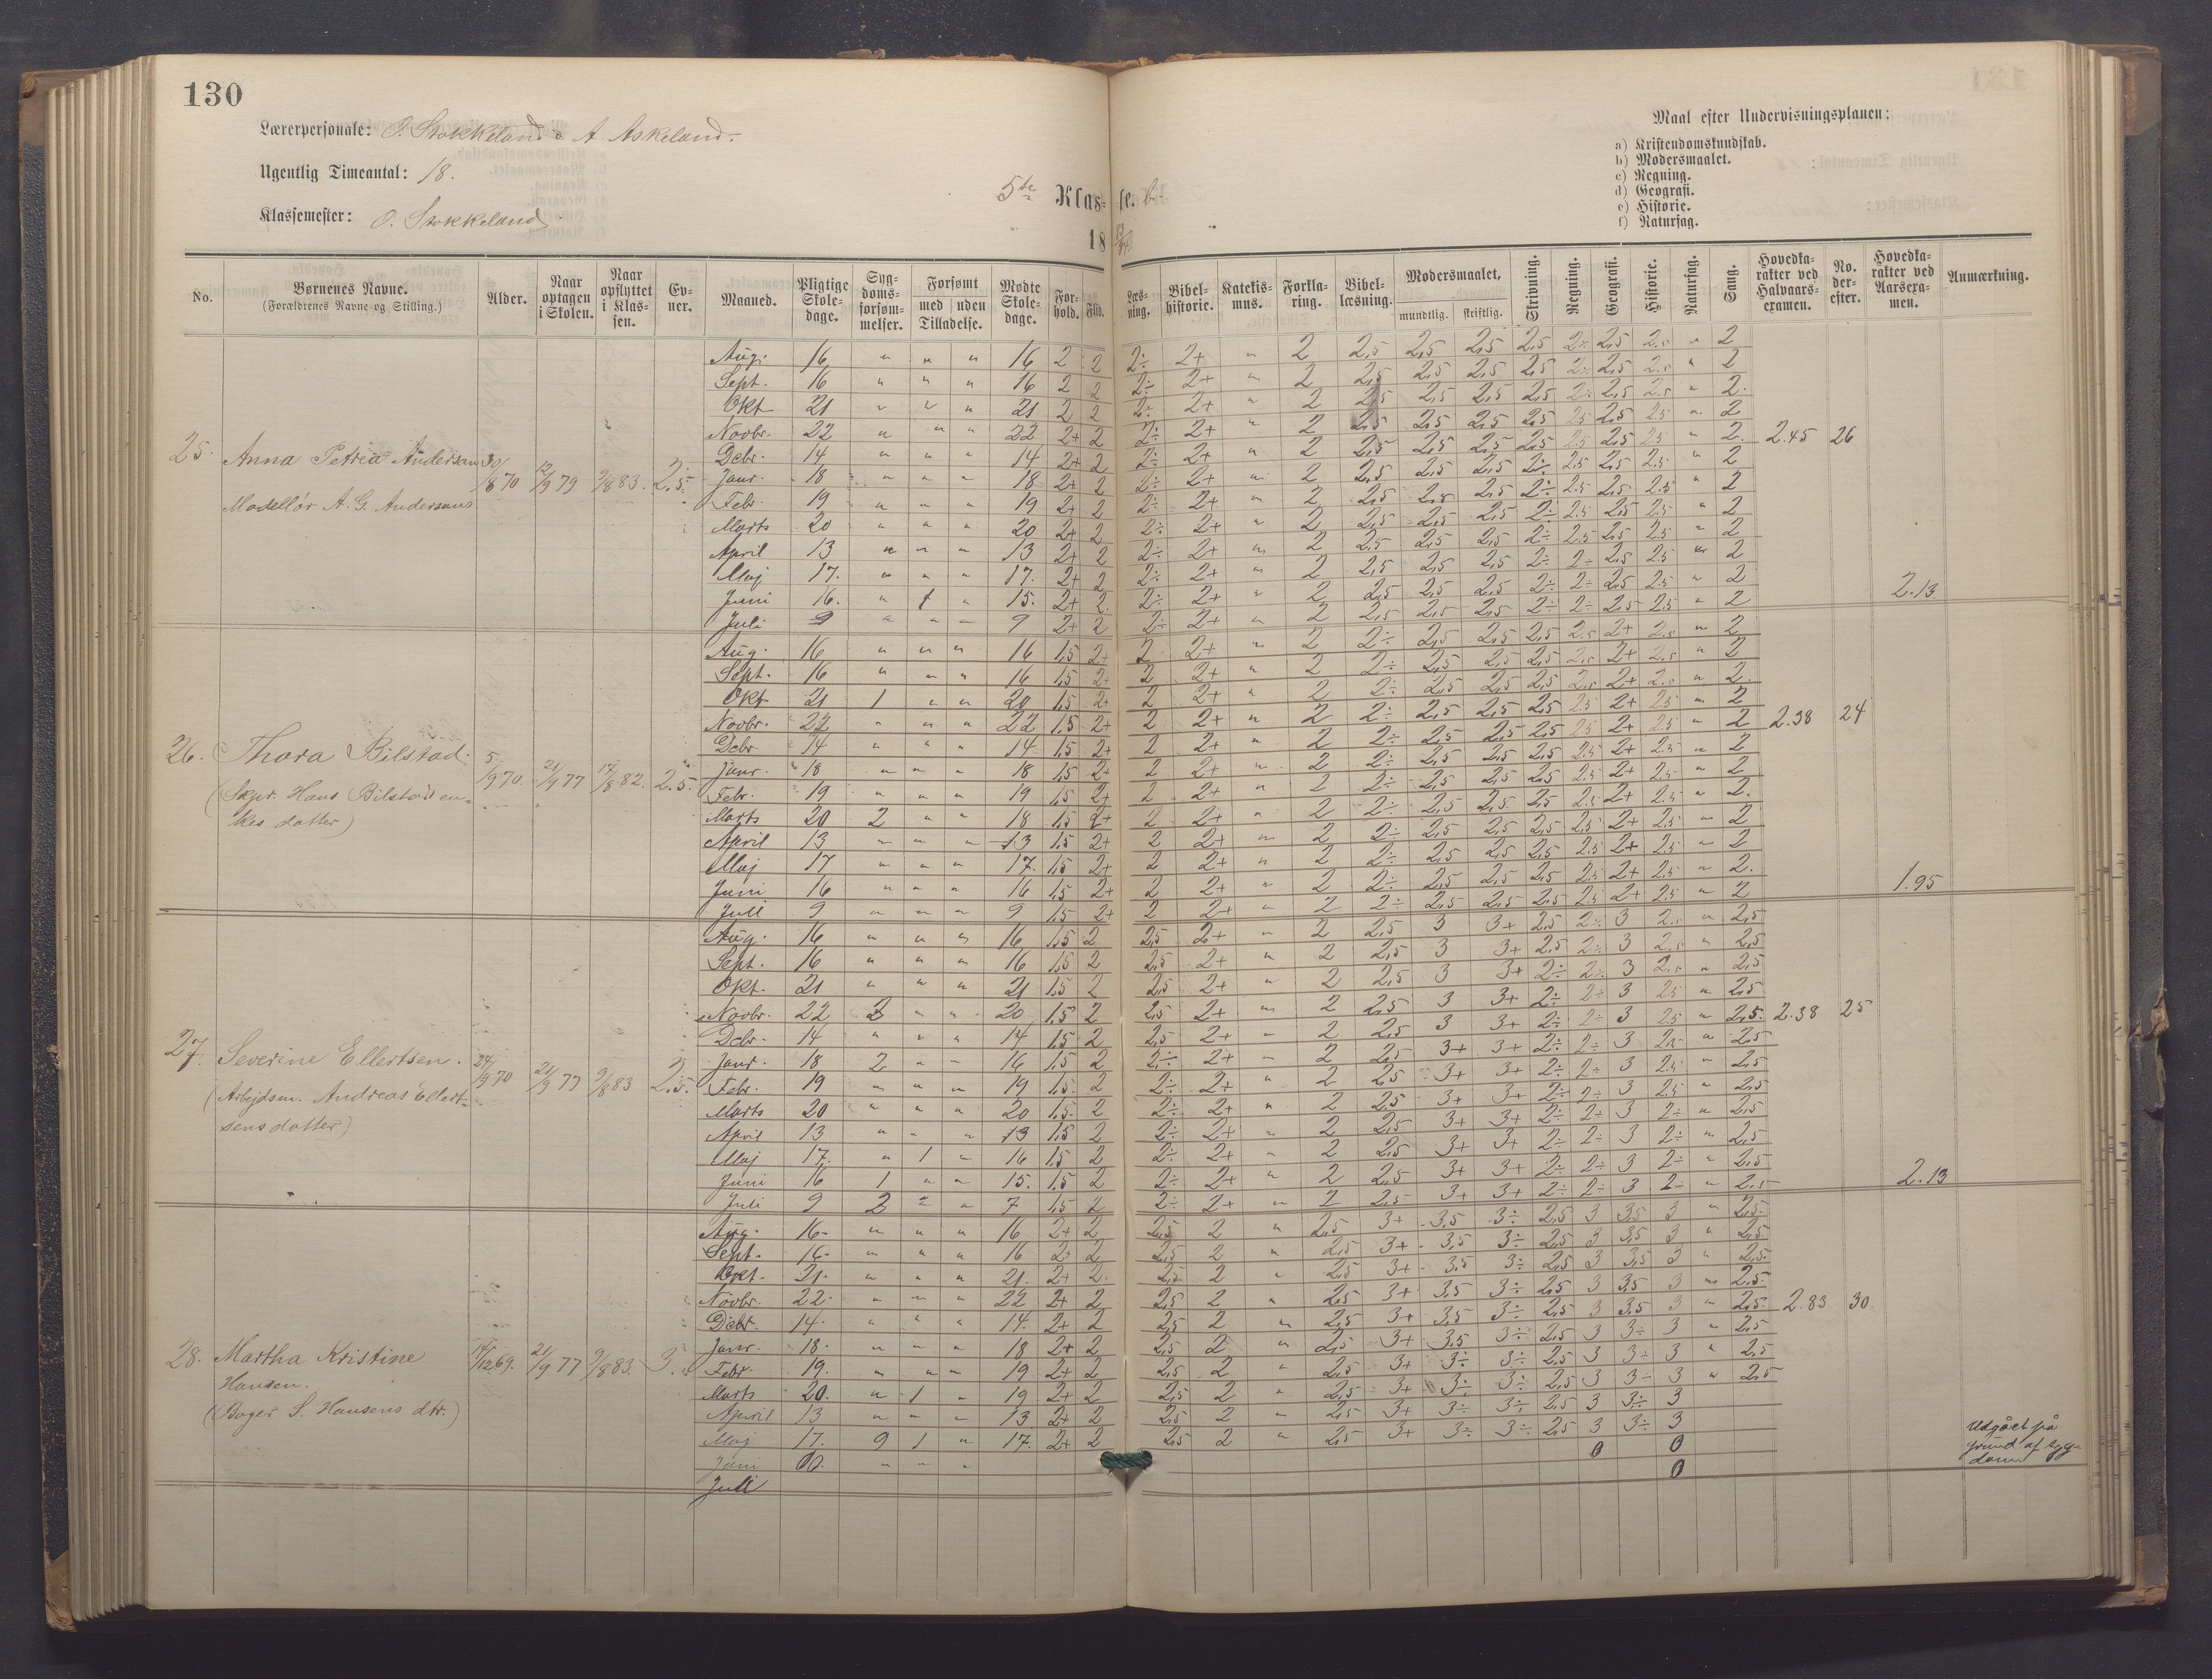 130
Lærerpersonale: O. Stokkeland & A. Askeland.
Ugentlig Timeantal: 18.
Klassemester: O. Stokkeland
5te Klasse. b.
18 83/84
Maal efter Undervisningsplanen:
a) Kristendomskundskab.
b) Modersmaalet.
c) Regning.
d) Geografi.
e) Historie.
f) Naturfag.
No. Børnenes Navne. (Forældrenes Navne og Stilling.) Alder. Naar optagen i Skolen. Naar opflyttet i Klassen. Evner. Maaned. Pligtige Skoledage. Sygdomsforsømmelser. Forsømt med uden Tilladelse. Mødte Skoledage. Forhold. Flid. Læsning. Bibelhistorie. Katekismus. Forklaring. Bibellæsning. Modersmaalet, mundtlig. skriftlig. Skrivning. Regning. Geografi. Historie. Naturfag. Sang. Hovedkarakter ved Halvaarsexamen. No. derefter. Hovedkarakter ved Aarsexamen. Anmærkning.
25. Anna Petrea Andersen 30/8 70 12/9 79 9/8 83. 2,5.
Modellør A. G. Andersens
Aug. 16 " " " 16 2 2 2÷ 2+ " 2 2,5 2,5 2,5 2,5 2÷ 2,5 2.5 " 2
Sept. 16 " " " 16 2 2 2÷ 2+ " 2 2,5 2,5 2,5 2,5 2÷ 2,5 2.5 " 2
Okt 21 " " " 21 2 2 2÷ 2+ " 2 2,5 2,5 2,5 2,5 2÷ 2,5 2.5 " 2.
Novbr. 22 " " " 22 2+ 2 2÷ 2+ " 2 2,5 2,5 2,5 2,5 2.5 2,5 2.5 " 2
Debr. 14 " " " 14 2+ 2 2÷ 2+ " 2 2,5 2,5 2,5 2,5 2.5 2,5 2.5 " 2. 2.45 26
Janr. 18 " " " 18 2+ 2 2÷ 2+ " 2 2,5 2,5 2,5 2÷ 2.5 2,5 2.5 " 2
Febr 19 " " " 19 2+ 2 2÷ 2+ " 2 2,5 2,5 2,5 2÷ 2.5 2,5 2.5 " 2
Marts 20 " " " 20 2+ 2 2÷ 2+ " 2 2,5 2,5 2,5 2÷ 2.5 2,5 2.5 " 2
April 13 " " " 13 2+ 2 2÷ 2+ " 2 2,5 2,5 2,5 2÷ 2.5 2,5 2.5 " 2
Maj 17. " " " 17. 2+ 2 2÷ 2+ " 2 2,5 2,5 2,5 2÷ 2÷ 2,5 2.5 " 2
Juni 16. " 1 " 15. 2+ 2. 2÷ 2+ " 2 2,5 2,5 2,5 2÷ 2÷ 2,5 2.5 " 2 2.13.
Juli 9 " " " 9 2+ 2 2÷ 2+ " 2 2,5 2,5 2,5 2÷ 2÷ 2,5 2.5 " 2
26. Thora Bilstad. 5/9 70. 21/9 77 17/8 82. 2.5.
(Skpr. Hans Bilstad en=
kes datter)
Aug. 16 " " " 16 1,5 2+ 2 2+ " 2 2÷ 2,5 2,5 2,5 2.5 2+ 2.5 " 2
Sept. 16 " " " 16 1,5 2+ 2 2+ " 2 2÷ 2,5 2,5 2,5 2.5 2+ 2.5 " 2
Okt 21 1 " " 20 1,5 2+ 2 2+ " 2 2÷ 2,5 2,5 2,5 2.5 2+ 2.5 " 2.
Novbr. 22 " " " 22 1,5 2+ 2 2+ " 2 2÷ 2,5 2,5 2,5 2.5 2+ 2.5 " 2
Debr. 14 " " " 14 1,5 2+ 2 2+ " 2 2÷ 2,5 2,5 2,5 2.5 2+ 2.5 " 2 2.38 24
Janr. 18 " " " 18 1,5 2+ 2 2+ " 2 2÷ 2,5 2,5 2,5 2.5 2+ 2.5 " 2
Febr. 19 " " " 19 1,5 2+ 2 2+ " 2 2÷ 2,5 2,5 2,5 2.5 2+ 2.5 " 2
Marts 20 2 " " 18 1,5 2+ 2 2+ " 2 2÷ 2,5 2,5 2,5 2.5 2+ 2.5 " 2.
April 13 " " " 13 1,5 2+ 2 2+ " 2 2÷ 2,5 2,5 2,5 2.5 2+ 2.5 " 2
Maj 17 " " " 17. 1,5 2+ 2 2+ " 2 2÷ 2,5 2,5 2,5 2.5 2+ 2.5 " 2
Juni 16 " " " 16 1,5 2+ 2 2+ " 2 2÷ 2,5 2,5 2,5 2.5 2+ 2.5 " 2. 1.95
Juli 9 " " " 9 1,5 2+ 2 2+ " 2 2÷ 2,5 2,5 2,5 2.5 2+ 2.5 " 2
27. Severine Ellertsen. 24/9 70 21/9 77 9/8 83 2,5.
(Arbejdsm. Andreas Ellert=
sens datter)
Aug. 16 " " " 16 1,5 2 2,5 2+ " 2 2,5 3 3+ 2,5 2÷ 3 2.5 " 2,5
Sept. 16 " " " 16 1,5 2 2,5 2+ " 2 2,5 3 3+ 2,5 2÷ 3 2.5 " 2,5
Okt. 21 " " " 21 1,5 2 2,5 2+ " 2 2,5 3 3+ 2÷ 2÷ 3 2.5 " 2,5
Novbr. 22 2 " " 20 1,5 2 2,5 2+ " 2 2,5 3 3+ 2÷ 2÷ 3 2.5 " 2,5
Debr. 14 " " " 14 1,5 2 2,5 2+ " 2 2,5 3 3+ 2÷ 2÷ 3 2.5 " 2,5. 2.38 25
Janr. 18 2 " " 16 1,5 2 2÷ 2+ " 2 2,5 3+ 3+ 2÷ 2÷ 3 2.5 " 2,5
Febr. 19 " " " 19 1,5 2 2÷ 2+ " 2 2,5 3+ 3+ 2÷ 2÷ 3 2.5 " 2,5
Marts 20 " " " 20 1,5 2 2÷ 2+ " 2 2,5 3+ 3+ 2÷ 2÷ 3 2.5 " 2,5
April 13 " " " 13 1,5 2 2÷ 2+ " 2 2,5 3+ 3+ 2÷ 2÷ 3 2÷ " 2,5
Maj 17. " 1 " 16 1,5 2 2÷ 2+ " 2 2,5 3+ 3+ 2÷ 2÷ 3 2÷ " 2,5
Juni 16 1 " " 15. 1,5 2 2÷ 2+ " 2 2,5 3+ 3+ 2÷ 2÷ 3 2÷ " 2,5 2.13
Juli 9 2 " " 7 1,5 2 2÷ 2+ " 2 2,5 3+ 3+ 2÷ 2÷ 3 2÷ " 2,5
28. Martha Kristine 14/12 69. 21/9 77 9/8 83. 3.
Hansen.
(Bager S. Hansens dtr.)
Aug. 16. " " " 16 2+ 2 2,5 2 " 2,5 3+ 3,5 3÷ 2,5 3 3,5 3 " 2,5
Sept. 16. " " " 16 2+ 2 2,5 2 " 2,5 3+ 3,5 3÷ 2,5 3 3,5 3 " 2,5
Okt. 21. " " " 21. 2+ 2. 2,5 2 " 2,5 3+ 3,5 3÷ 2,5 3 3,5 3 " 2,5
Novbr. 22. " " " 22 2+ 2 2,5 2 " 2,5 3+ 3,5 3÷ 2,5 3 3,5 3 " 2,5
Debr. 14. " " " 14. 2+ 2 2,5 2 " 2,5 3+ 3,5 3÷ 2,5 3 3,5 3 " 2,5. 2.83 30.
Janr. 18. " " " 18 2+ 2 2,5 2 " 2,5 3+ 3,5 3÷ 2,5 3 3÷ 3 " 2,5
Febr 19. " " " 19 2+ 2 2,5 2 " 2,5 3+ 3÷ 3÷ 2,5 3 3÷ 3 " 2,5
Marts 20. " 1 " 19 2+ 2 2,5 2 " 2,5 3+ 3÷ 3÷ 2,5 3 3÷ 3 " 2,5
April 13 " " " 13 2+ 2 2,5 2 " 2,5 3+ 3÷ 3÷ 2,5 3 3÷ 3
Maj 17. 9 1 " 17. 2+ 2 2,5 2 " 2,5 3+ 3÷ 3÷ 2,5 3 3÷ 3
Juni 00. " " " 0 0
Juli 0
Udgået på
grund af syg=
dom.